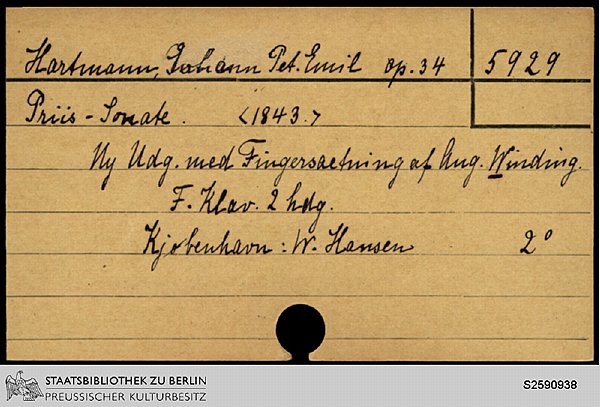 Hartmann, Johann Pet. Emil op. 34 5929
Priis-Sonate. <1843.>
Ny Udg. med Fingersaetning af Aug. Winding.
F. Klav. 2 hdg.
Kjøbenhavn: W. Hansen 2°
STAATSBIBLIOTHEK ZU BERLIN
PREUSSISCHER KULTURBESITZ
S2590938